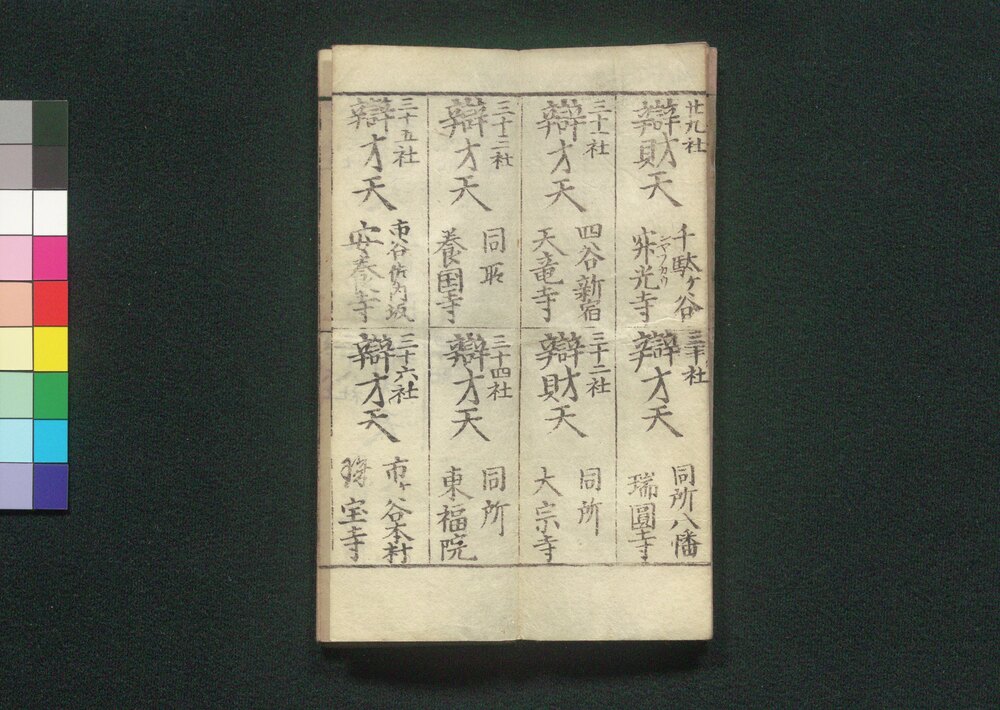 廿九社
辯財天
千駄ヶ谷
寂光寺
三十社
辯才天
同所八幡
瑞圓寺
三十一社
辯才天
四谷新宿
天竜寺
三十二社
辯財天
同所
大宗寺
三十三社
辯才天
同所
養国寺
三十四社
辯才天
同所
東福院
三十五社
辯才天
市谷佐内坂
安養寺
三十六社
辯才天
市ヶ谷本村
宝寺